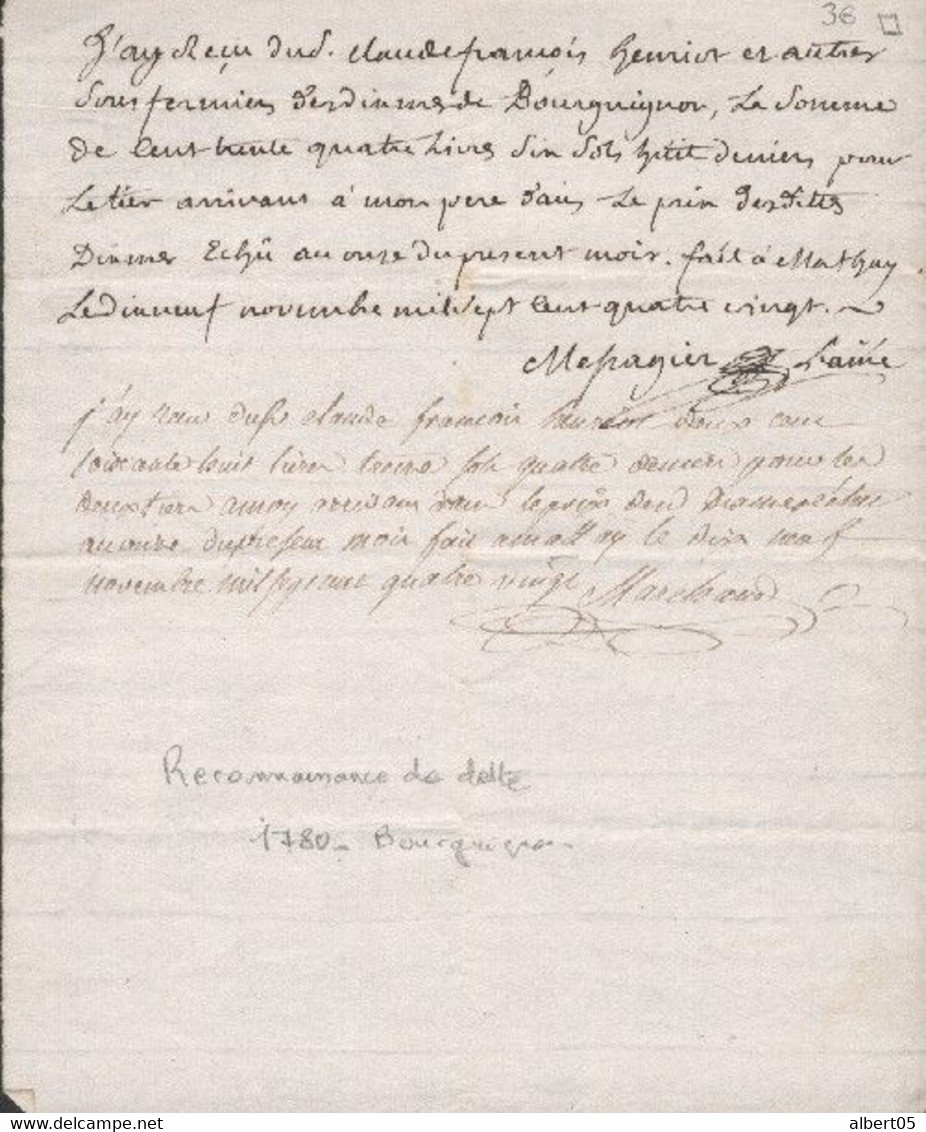 36
J'ay Reçu dud. claude françois henriot et autres
Sous fermiers des dixmes de Bourguignon, La Somme
de Cent trente quatre Livres Six Sols huit deniers pour
Le tier arrivant à mon pere dans Le prix desdittes
Dixmes Echû au onze du present mois. fait à Mathay
Le dix neuf novembre mil Sept Cent quatre vingt.
Mespagier L'ainé
j'ay reçu dud claude francois henriot deux cent
soixante huit livres treize sols quatre deniers pour les
deux tiers a moy arrivant dans le prix des dixmes échu
au onze du present mois fait a mathay le dix neuf
novembre mil sept cent quatre vingt Marchand
Reconnaissance de dette
1780 - Bourguignon
albert05